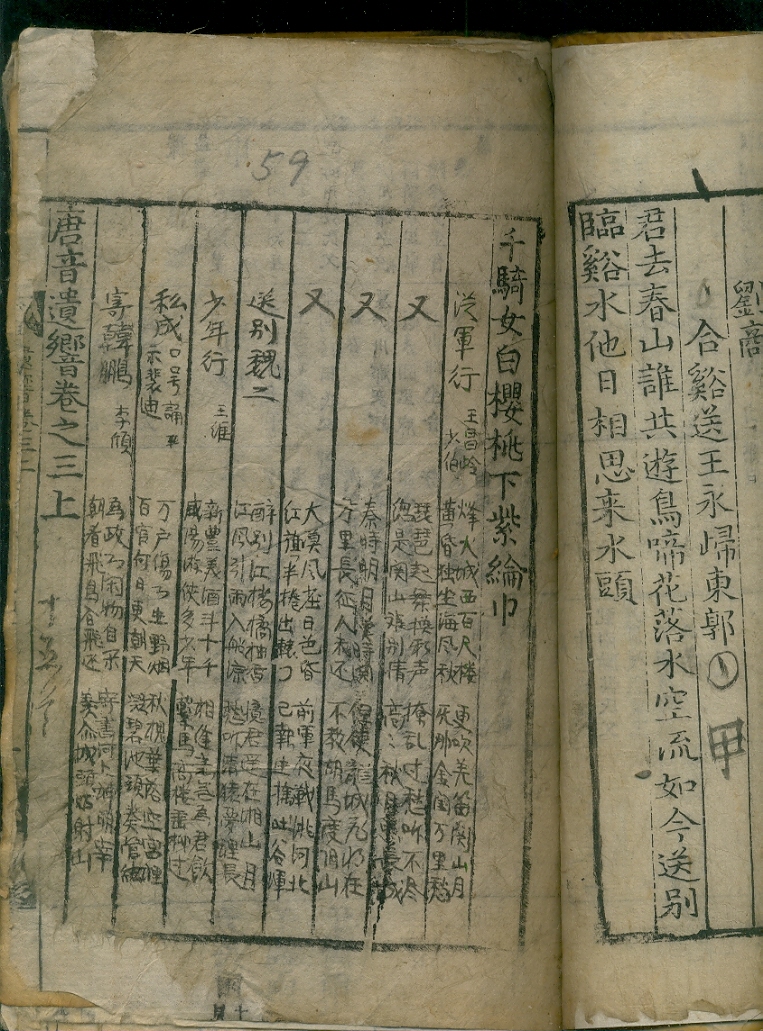 劉商
合谿送王永歸東郭
甲
君去春山誰共遊鳥啼花落水空流如今送別
臨谿水他日相思来水頭
59
千騎女白櫻桃下紫綸巾
從軍行 王昌岭 少伯
烽火城西百尺楼 更吹羌笛関山月
黄昏独坐海風秋 无那金閨万里愁
又
琵琶起舞換新声 撩乱边愁听不尽
總是関山離別情 高〻秋月照長城
又
秦時明月漢時關 但使龍城飛将在
万里長征人未还 不教胡馬度阴山
又
大漠風塵日色昏 前軍夜戰洮河北
红旗半捲出轅门 已報生擒吐谷渾
送別魏二
醉別江楼橘柚香 憶君遥在湘山月
江風引雨入船凉 愁听清猿夢裡長
少年行 王維
新豊美酒斗十千 相逢意氣为君飲
咸陽游俠多少年 繫馬高楼垂柳边
私成口号誦 示裴迪
万户傷心生野烟 秋槐葉落空宫裡
百官何日更朝天 凝碧池頭奏管絃
寄韓鵬 李頎
為政心闲物自采 寄書河上神明宰
朝看飛鳥合飛还 羡尔城頭姑射山
唐音遺響卷之三上